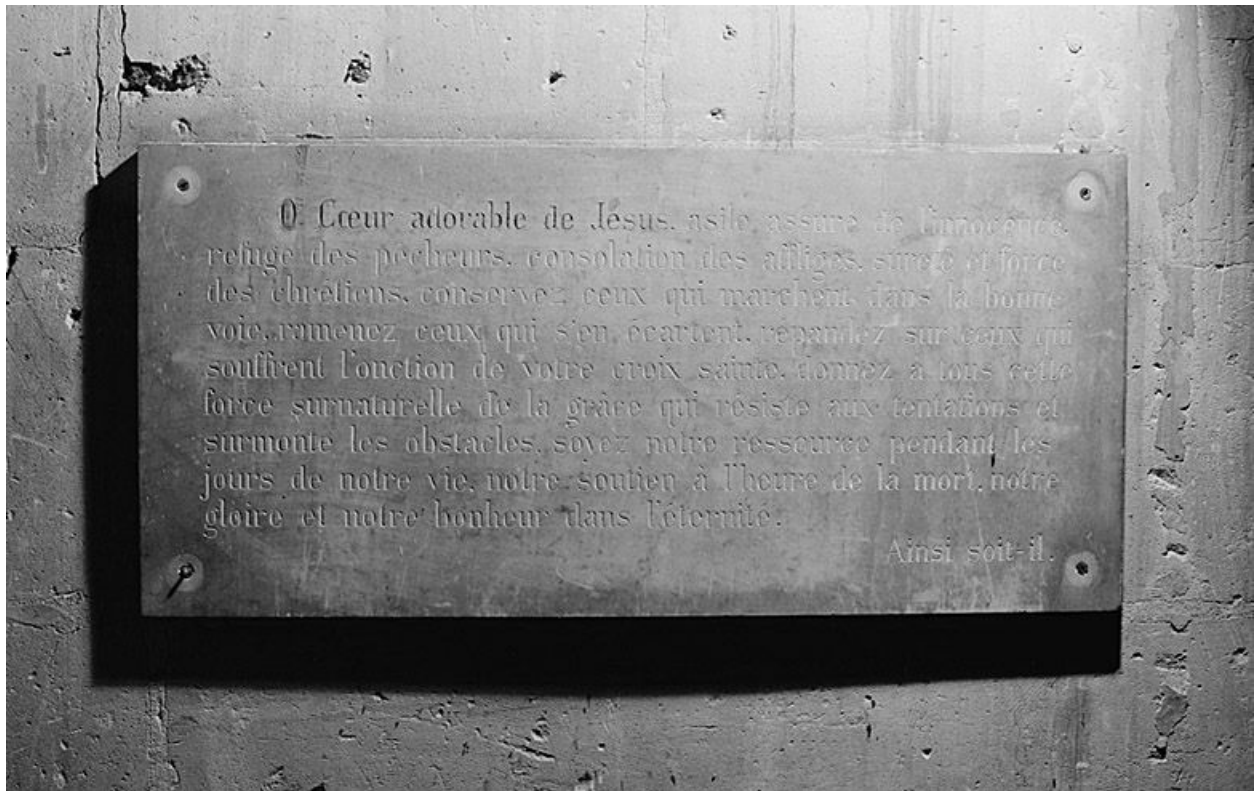 O. Cœur adorable de Jésus, asile assuré de l'innocence,
refuge des pécheurs, consolation des affligés, sureté et force
des chrétiens, conservez ceux qui marchent dans la bonne
voie, ramenez ceux qui s'en écartent, répandez sur ceux qui
souffrent l'onction de votre croix sainte, donnez à tous cette
force surnaturelle de la grâce qui résiste aux tentations et
surmonte les obstacles, soyez notre ressource pendant les
jours de notre vie, notre soutien à l'heure de la mort, notre
gloire et notre bonheur dans l'éternité.
Ainsi soit-il.